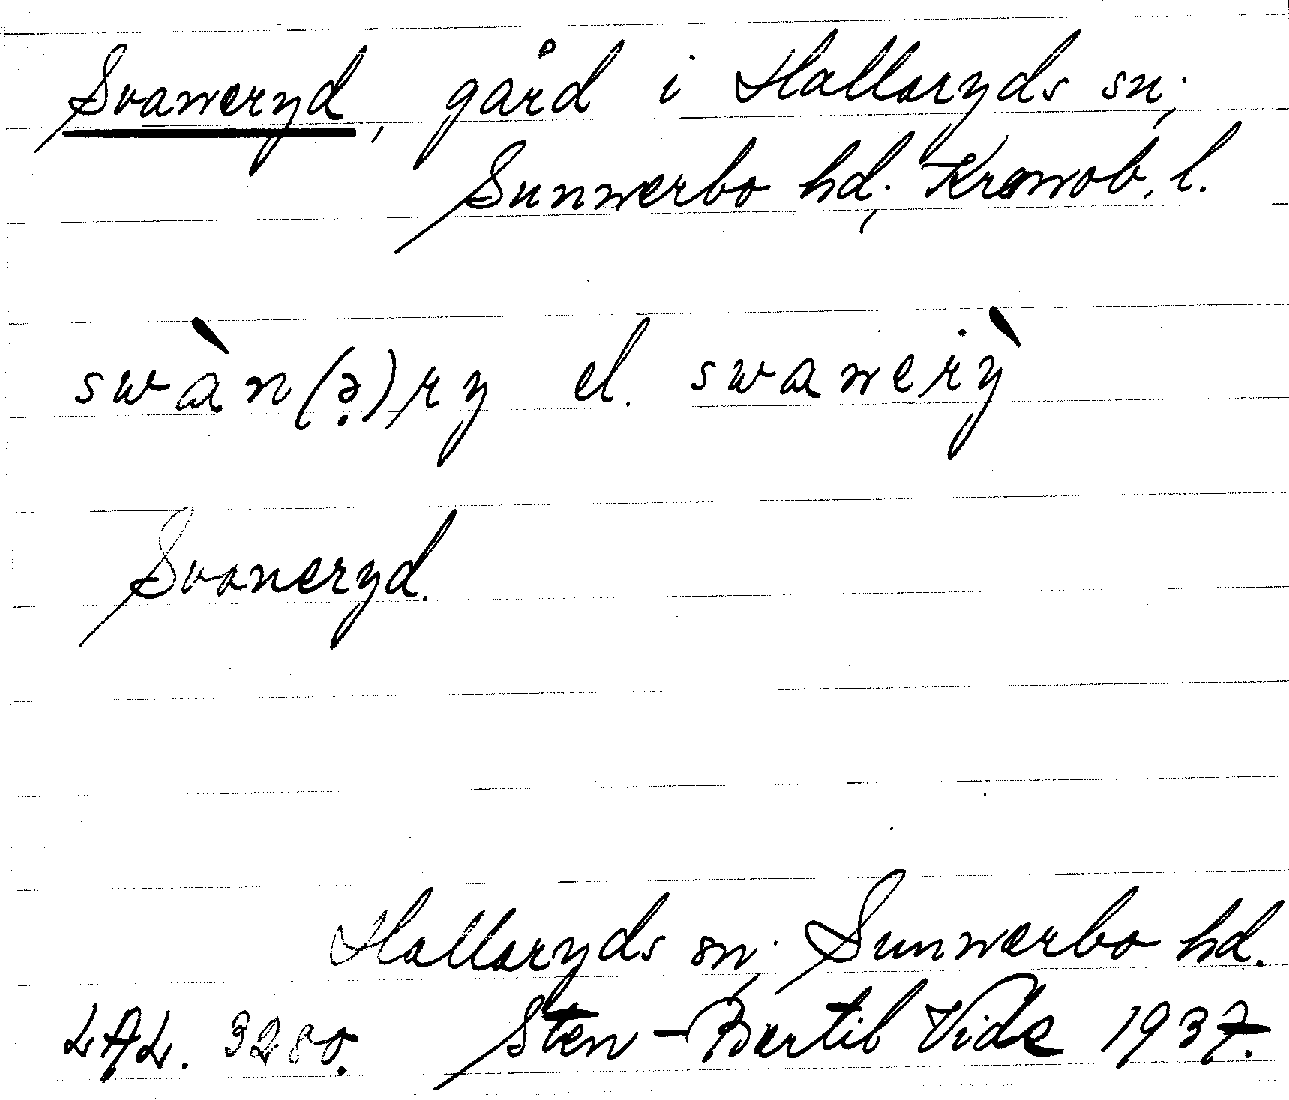 Svaneryd, gård i Hallaryds sn;
Sunnerbo hd; Kronob. l.
swàn(ə̣)ry el. swanerỳ
Svaneryd.
Hallaryds sn; Sunnerbo hd.
LAL. 3280. Sten-Bertil Vide 1937.